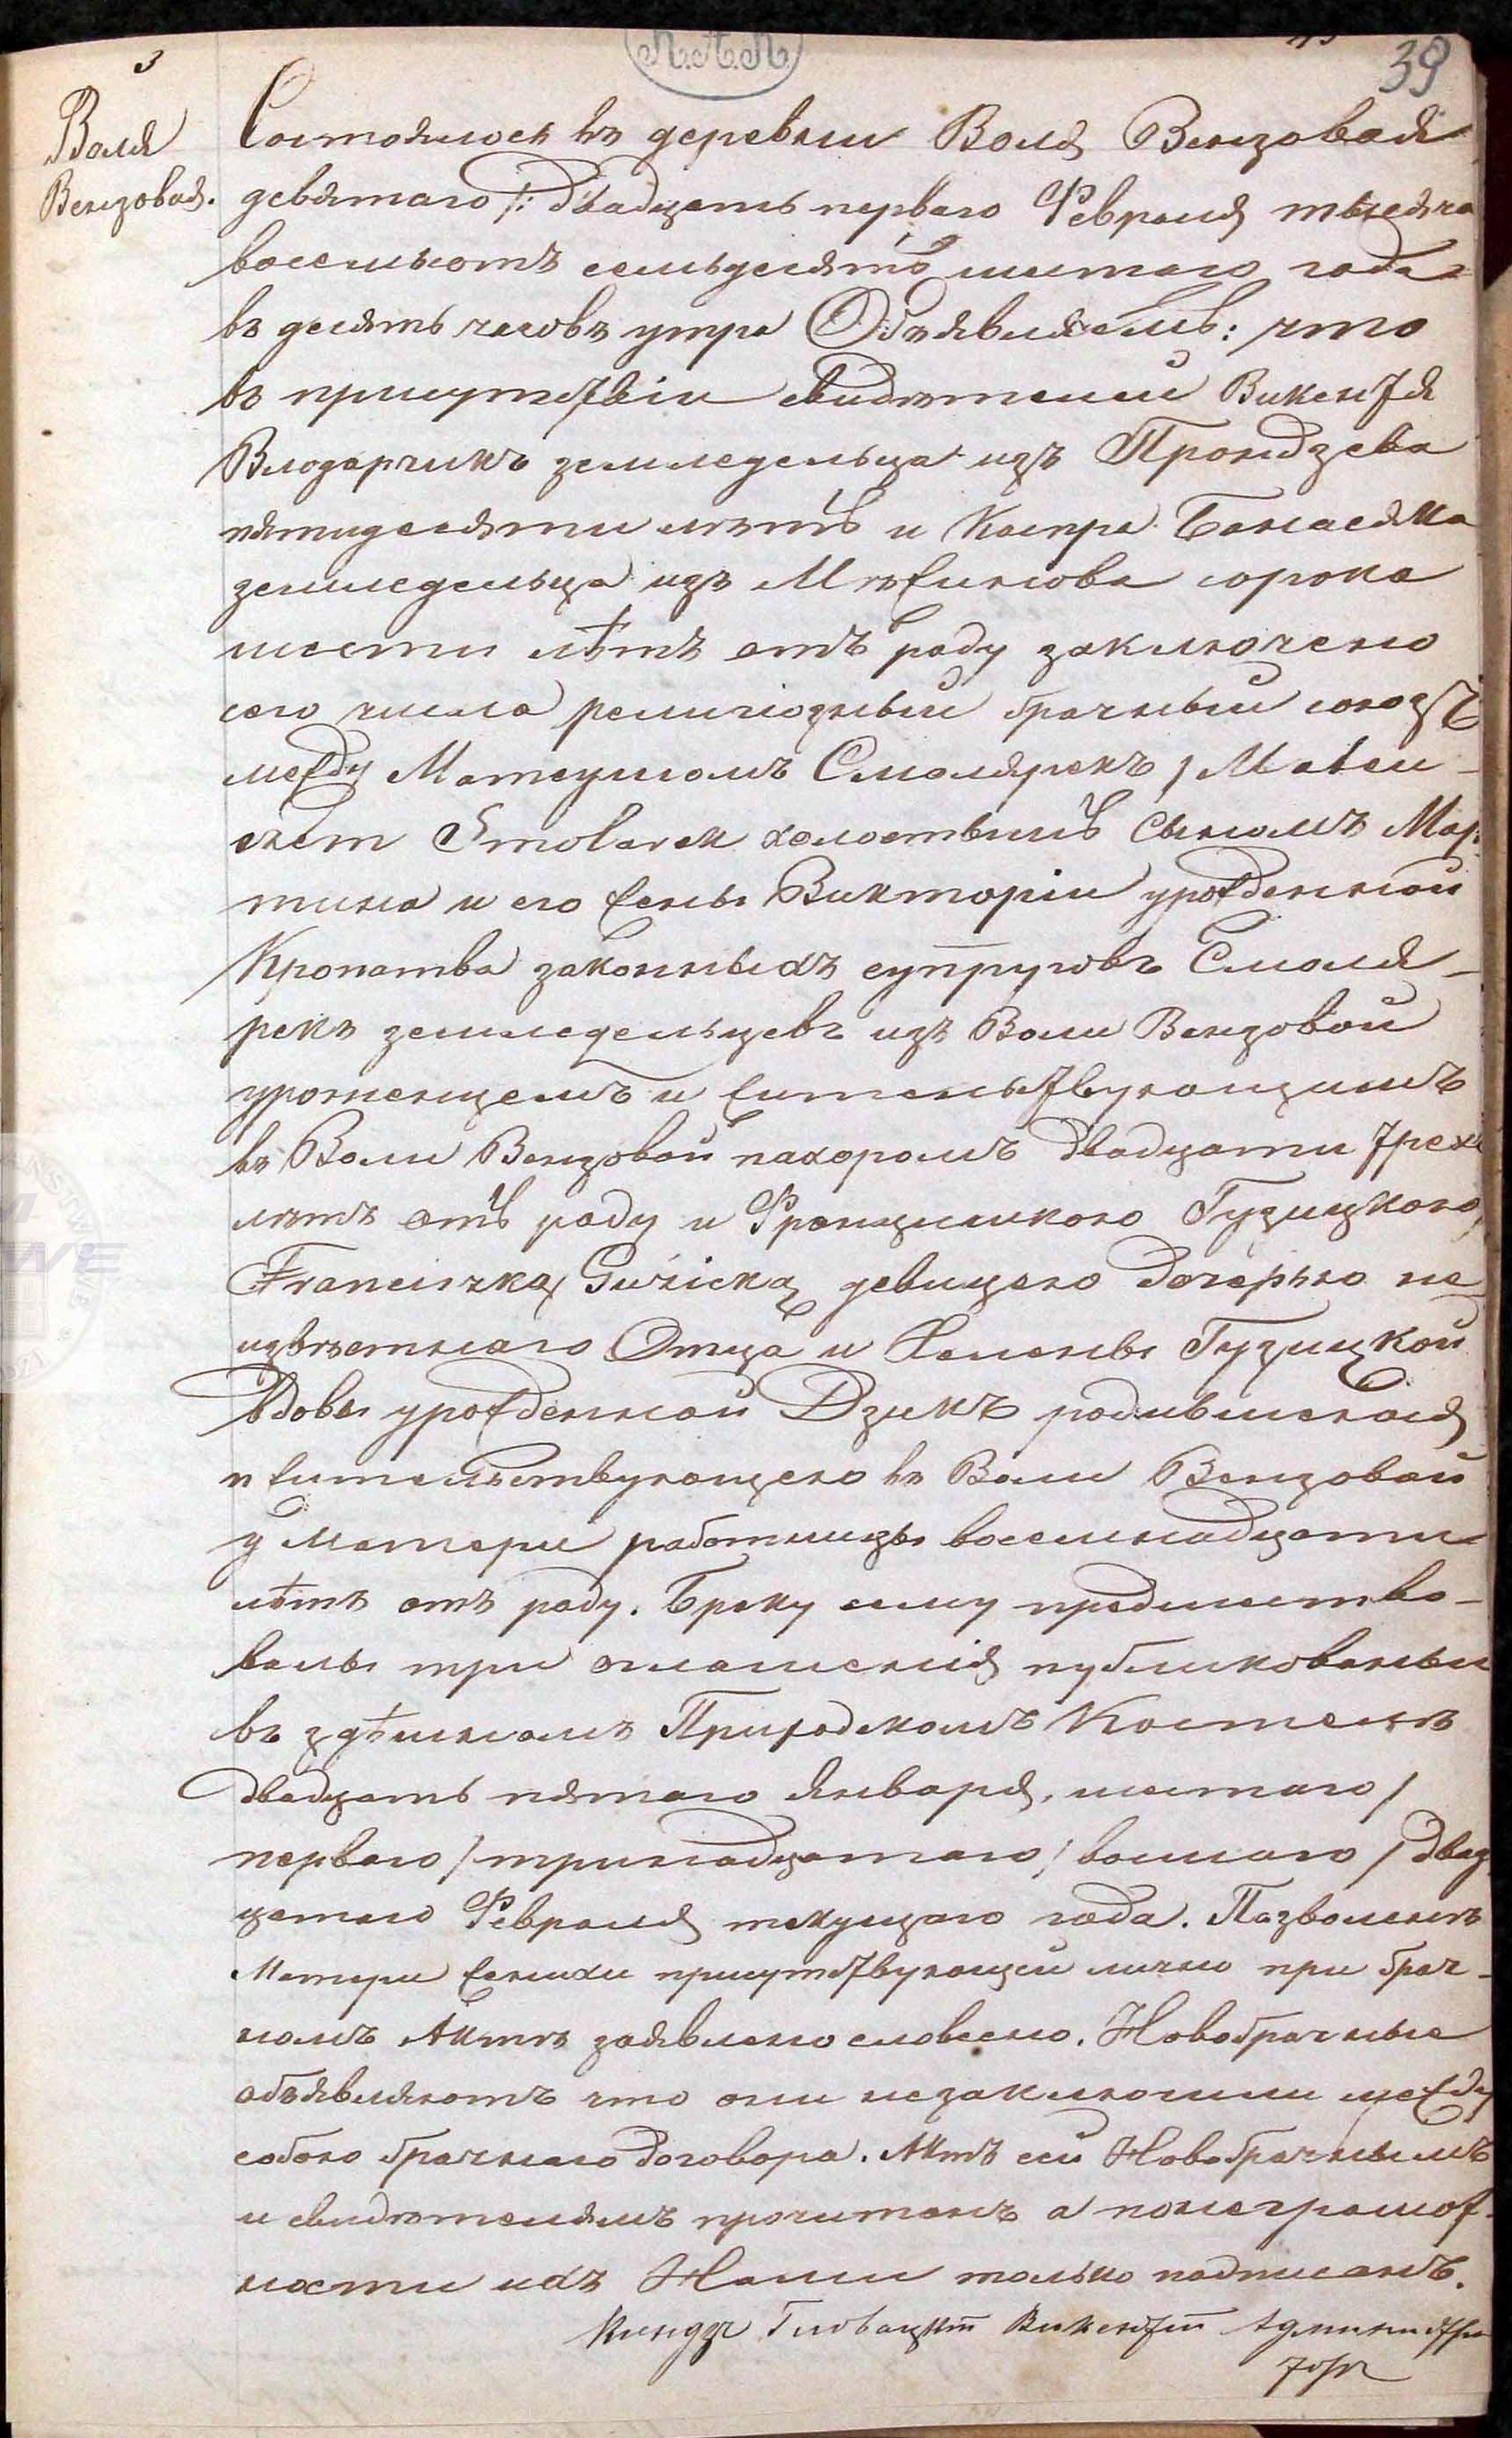 3
39
Л.А.Л.
Воля
Венцовая.
Состоялось въ деревни Воля Венцовая
девятаго /: двадцать перваго Февраля тысяча
восемьсотъ семьдесятъ шестаго года
въ десять часовъ утра Объявляемъ: что
въ присутствіи свидѣтелей Викентія
Влодарчикъ земледельца изъ Прондзева
пятидесяти лѣтъ и Каспра Банасяка
земледельца изъ Мнѣжинова сорока
шести лѣтъ отъ роду заключено
сего числа религіозный брачный союзъ
между Матеушомъ Смолярекъ / Mateu-
szem Smolarek холостымъ сыномъ Мар-
тина и его жены Викторіи урожденной
Кропатва законныхъ супруговъ Смоля-
рекъ земледельцевъ изъ Воли Венцовой
уроженцемъ и жительствующимъ
въ Воли Венцовой пахоромъ двадцати трехъ
лѣтъ отъ роду и Францишкою Гузицкою,
Franciszką Guzicką девицею дочерью не
извѣстнаго Отца и Хелены Гузицкой
вдовы урожденной Дзикъ родившеюся
и жительствующею въ Воли Венцовой
у матери работницы восемнадцати
лѣтъ отъ роду. Браку сему предшество-
валы три оглашенія публикованы
въ здѣшномъ Приходскомъ Костелѣ
двадцать пятаго Января, шестаго /
перваго / тринадцатаго / восмаго / двад
цатаго Февраля текущаго года. Позволенѣ
Матери женихи присутствующей лично при брач-
номъ Актѣ заявлено словесно. Новобрачные
объявляютъ что они незаключили между
собою брачнаго договора. Актъ сей Новобрачнымъ
и свидѣтелямъ прочитанъ а понеграмот-
ности ихъ Нами только подписанъ.
Викентій Администра
торъ